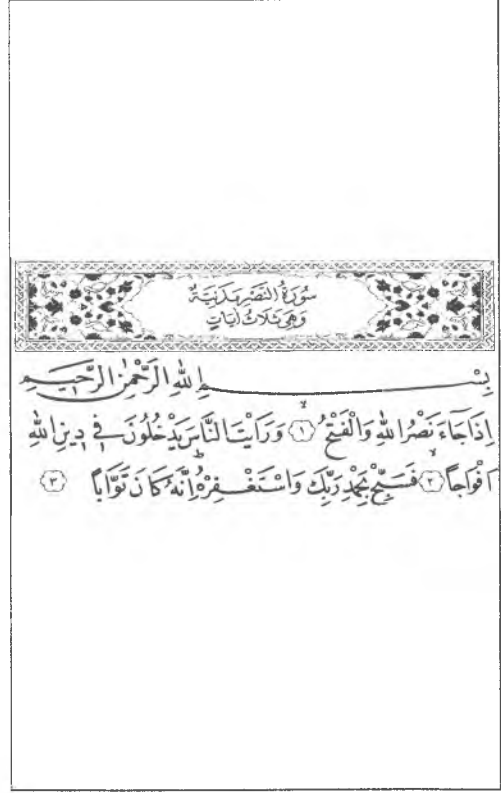 سُورَةُ النَّصْرِ مَدَنِيَّةٌ
وَهِيَ ثَلَاثُ اٰيَاتٍ
بِسْــــمِ اللّٰهِ الرَّحْمٰنِ الرَّحٖيمِ
اِذَا جَٓاءَ نَصْرُ اللّٰهِ وَالْفَتْحُۙ ﴿١﴾ وَرَاَيْتَ النَّاسَ يَدْخُلُونَ فٖي دٖينِ اللّٰهِ
اَفْوَاجًاۙ ﴿٢﴾ فَسَبِّحْ بِحَمْدِ رَبِّكَ وَاسْتَغْفِرْهُؕ اِنَّهُ كَانَ تَوَّابًا ﴿٣﴾